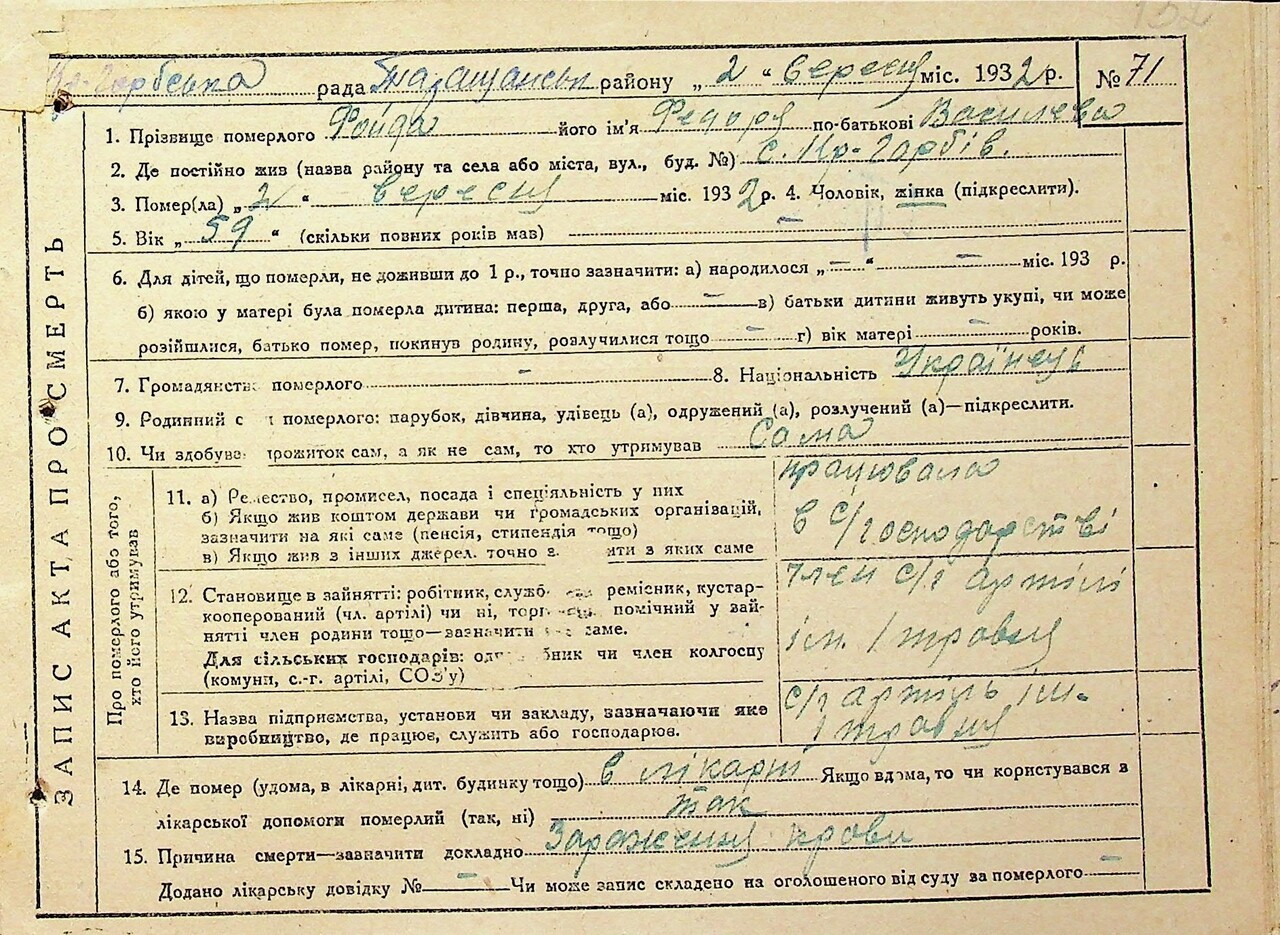 132
Кр-Горбська рада Таращанськ району „ 2 “ вересня міс. 1932 р. № 71
1. Прізвище померлого Ройда його ім'я Федора по-батькові Василева
2. Де постійно жив (назва району та села або міста, вул., буд. №) с. Кр-Горбів.
3. Помер(ла) „ 2 “ вересня міс. 1932 р. 4. Чоловік, жінка (підкреслити).
5. Вік „ 59 “ (скільки повних років мав) –
6. Для дітей, що померли, не доживши до 1 р., точно зазначити: а) народилося „ – “ – міс. 193 р.
б) якою у матері була померла дитина: перша, друга, або – в) батьки дитини живуть укупі, чи може
розійшлися, батько помер, покинув родину, розлучилися тощо – г) вік матері – років.
7. Громадянств померлого – 8. Національність Українець
9. Родинний с н померлого: парубок, дівчина, удівець (а), одружений (а), розлучений (а)—підкреслити.
10. Чи здобува прожиток сам, а як не сам, то хто утримував Сама
ЗАПИС АКТА ПРО СМЕРТЬ
Про померлого або того, хто його утримував
11. а) Ремество, промисел, посада і спеціяльність у них
б) Якщо жив коштом держави чи громадських організацій,
зазначити на які саме (пенсія, стипендія тощо)
в) Якщо жив з інших джерел, точно з ити з яких саме
працювала
в с/господарстві
12. Становище в зайнятті: робітник, служб ремісник, кустар-
кооперований (чл. артілі) чи ні, торг помічний у зай-
нятті член родини тощо—зазначити саме.
Для сільських господарів: од бник чи член колгоспу
(комуни, с.-г. артілі, СОЗ'у)
член с/г артілі
ім. 1 травня
13. Назва підприємства, установи чи закладу, зазначаючи яке
виробництво, де працює, служить або господарює.
с/г артіль ім.
1 травня
14. Де помер (удома, в лікарні, дит. будинку тощо) в лікарні Якщо вдома, то чи користувався з
лікарської допомоги померлий (так, ні) так
15. Причина смерти—зазначити докладно Зараження крови
Додано лікарську довідку № – Чи може запис складено на оголошеного від суду за померлого –